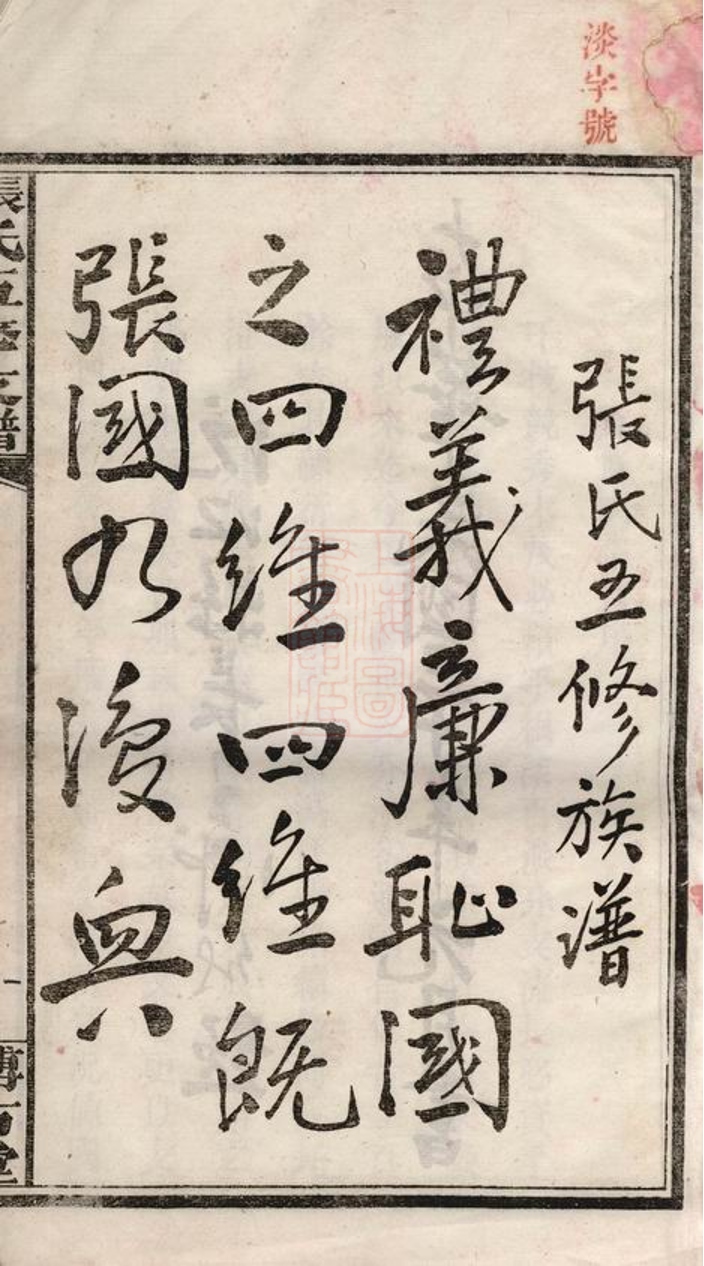 淡字號
張氏五修族譜
禮義廉恥國
之四維四維既
張國乃復興
張氏五修支譜
一